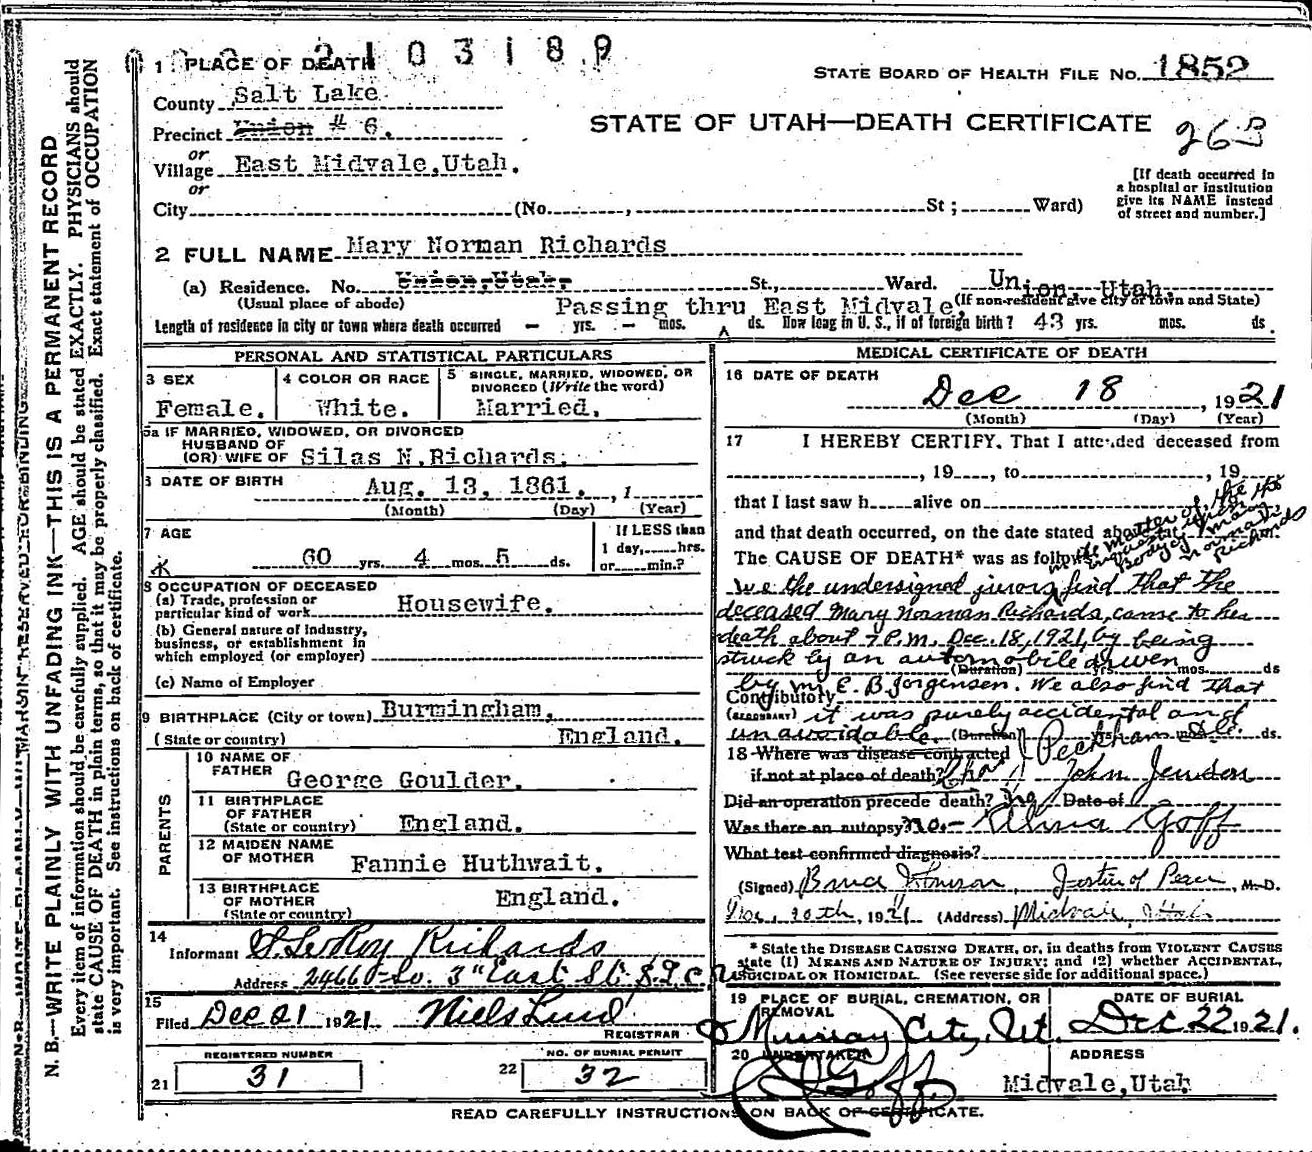 2103189
1 PLACE OF DEATH
STATE BOARD OF HEALTH FILE No. 1852
County Salt Lake
Precinct Union # 6.
STATE OF UTAH—DEATH CERTIFICATE
263
or
Village East Midvale, Utah.
or
City (No. , St; Ward)
[If death occurred in
a hospital or institution
give its NAME instead
of street and number.]
2 FULL NAME Mary Norman Richards
(a) Residence. No. Union, Utah, St., Ward. Union, Utah.
(Usual place of abode) Passing thru East Midvale, (If non-resident give city or town and State)
Length of residence in city or town where death occurred — yrs. — mos. ds. How long in U. S., if of foreign birth? 43 yrs. mos. ds.
PERSONAL AND STATISTICAL PARTICULARS
3 SEX
Female.
4 COLOR OR RACE
White.
5 SINGLE, MARRIED, WIDOWED, OR
DIVORCED (Write the word)
Married.
5a IF MARRIED, WIDOWED, OR DIVORCED
HUSBAND OF
(OR) WIFE OF Silas N. Richards.
DATE OF BIRTH Aug. 13, 1861. , 1
(Month) (Day) (Year)
7 AGE
60 yrs. 4 mos. 5 ds.
If LESS than
1 day, hrs.
or min.?
8 OCCUPATION OF DECEASED
(a) Trade, profession or
particular kind of work Housewife.
(b) General nature of industry,
business, or establishment in
which employed (or employer)
(c) Name of Employer
9 BIRTHPLACE (City or town) Burmingham,
(State or country) England.
PARENTS
10 NAME OF
FATHER George Goulder.
11 BIRTHPLACE
OF FATHER
(State or country) England.
12 MAIDEN NAME
OF MOTHER Fannie Huthwait.
13 BIRTHPLACE
OF MOTHER
(State or country) England.
14
Informant S. LeRoy Richards
Address 2466 So. 3" East St S.L.C.
15
Filed Dec 21 1921 Niels Lind
REGISTRAR
REGISTERED NUMBER
21 31
NO. OF BURIAL PERMIT
22 32
MEDICAL CERTIFICATE OF DEATH
16 DATE OF DEATH
Dec 18, 1921
(Month) (Day) (Year)
17 I HEREBY CERTIFY, That I attended deceased from
, 19 , to , 19
that I last saw h alive on
and that death occurred, on the date stated above
The CAUSE OF DEATH* was as follows
in the matter of the
inquest upon the
body of Mary
Norman
Richards
We the undersigned jurors find that the
deceased Mary Norman Richards, came to her
death about 7 P.M. Dec. 18, 1921, by being
struck by an automobile driven
(Duration) yrs. mos. ds
by Mr E. B. Jorgensen. We also find that
Contributory
(SECONDARY) it was purely accidental and
unavoidable. (Duration) yrs. mos. ds.
18 Where was disease contracted J Peckham
if not at place of death? John Jenson
Did an operation precede death? no Date of
Was there an autopsy? no.— Alma Goff
What test confirmed diagnosis?
(Signed) Justice of Peace, M. D.
Dec. 20th, 1921 (Address) Midvale, Utah
* State the DISEASE CAUSING DEATH, or, in deaths from VIOLENT CAUSES
state (1) MEANS AND NATURE OF INJURY; and (2) whether ACCIDENTAL,
SUICIDAL OR HOMICIDAL. (See reverse side for additional space.)
19 PLACE OF BURIAL, CREMATION, OR
REMOVAL
Murray City, Ut.
DATE OF BURIAL
Dec 22 1921.
20 UNDERTAKER
Goff
ADDRESS
Midvale, Utah
READ CAREFULLY INSTRUCTIONS ON BACK OF CERTIFICATE.
MARGIN RESERVED FOR BINDING
N. B.—WRITE PLAINLY WITH UNFADING INK—THIS IS A PERMANENT RECORD
Every item of information should be carefully supplied. AGE should be stated EXACTLY. PHYSICIANS should
state CAUSE OF DEATH in plain terms, so that it may be properly classified. Exact statement of OCCUPATION
is very important. See instructions on back of certificate.